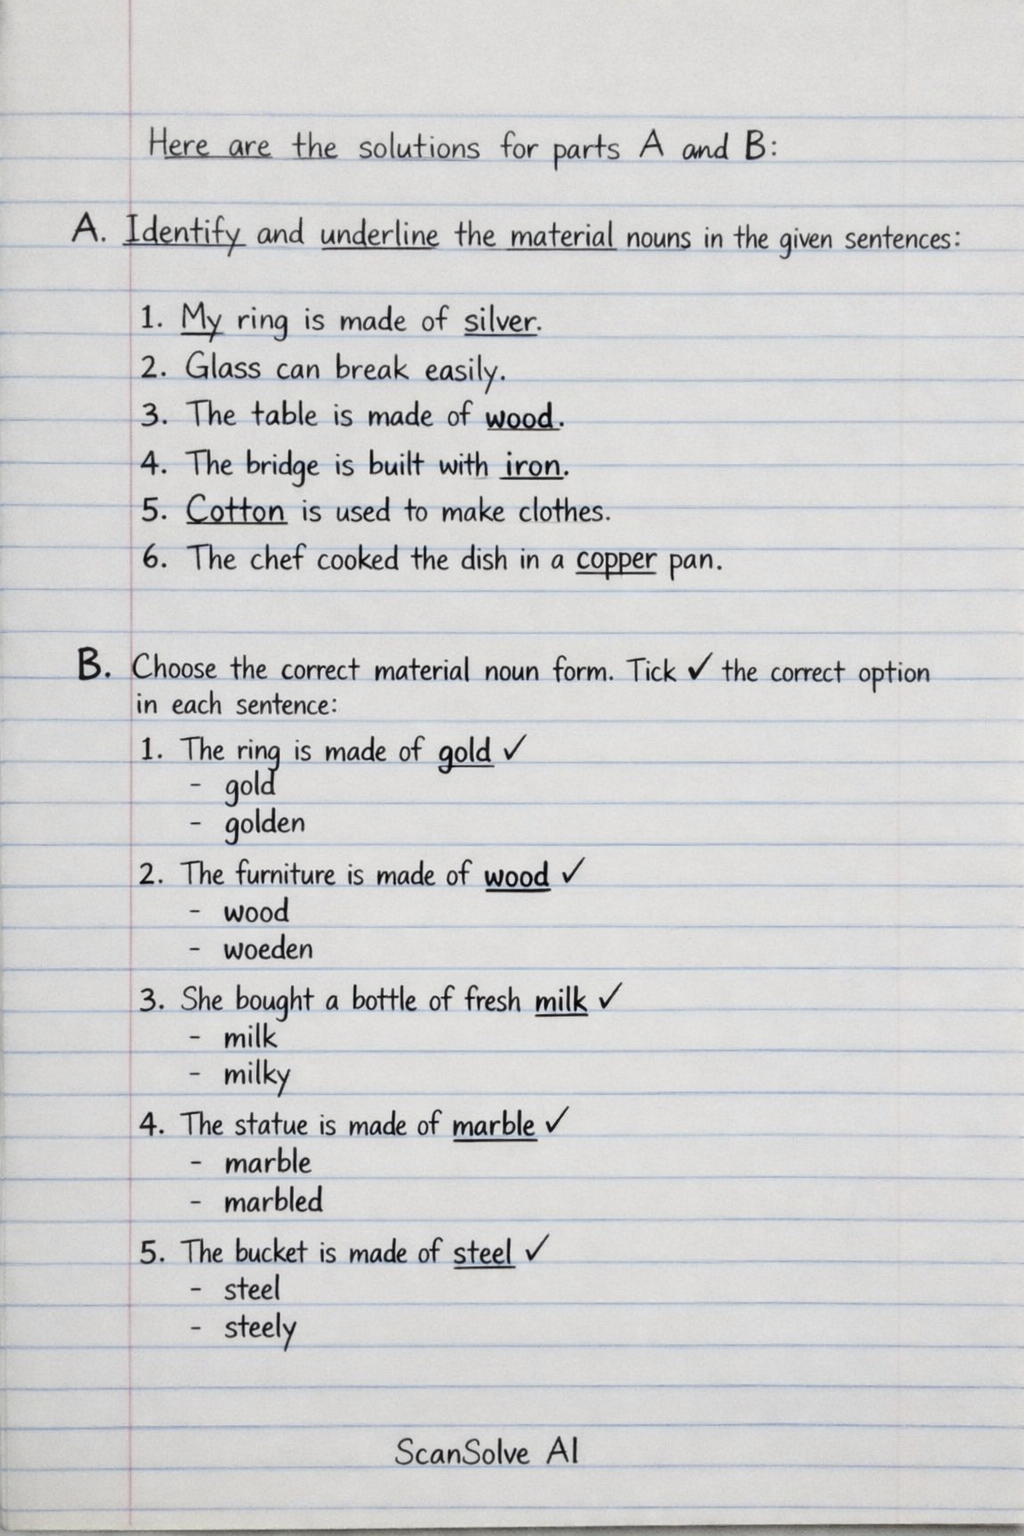 Here are the solutions for parts A and B:
A. Identify and underline the material nouns in the given sentences:
1. My ring is made of silver.
2. Glass can break easily.
3. The table is made of wood.
4. The bridge is built with iron.
5. Cotton is used to make clothes.
6. The chef cooked the dish in a copper pan.
B. Choose the correct material noun form. Tick ✓ the correct option
in each sentence:
1. The ring is made of gold ✓
- gold
- golden
2. The furniture is made of wood ✓
- wood
- woeden
3. She bought a bottle of fresh milk ✓
- milk
- milky
4. The statue is made of marble ✓
- marble
- marbled
5. The bucket is made of steel ✓
- steel
- steely
ScanSolve AI